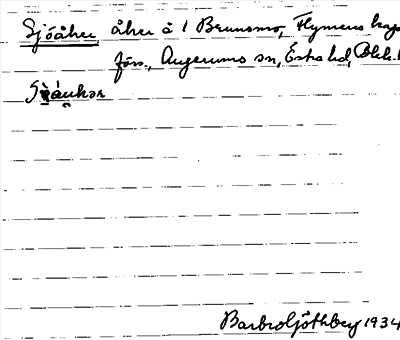 Sjöåker, åker å 1 Brunsmo, Flymens kap
förs., Augerums sn, Östra hd, Blek.
Barbro Göthberg 1934